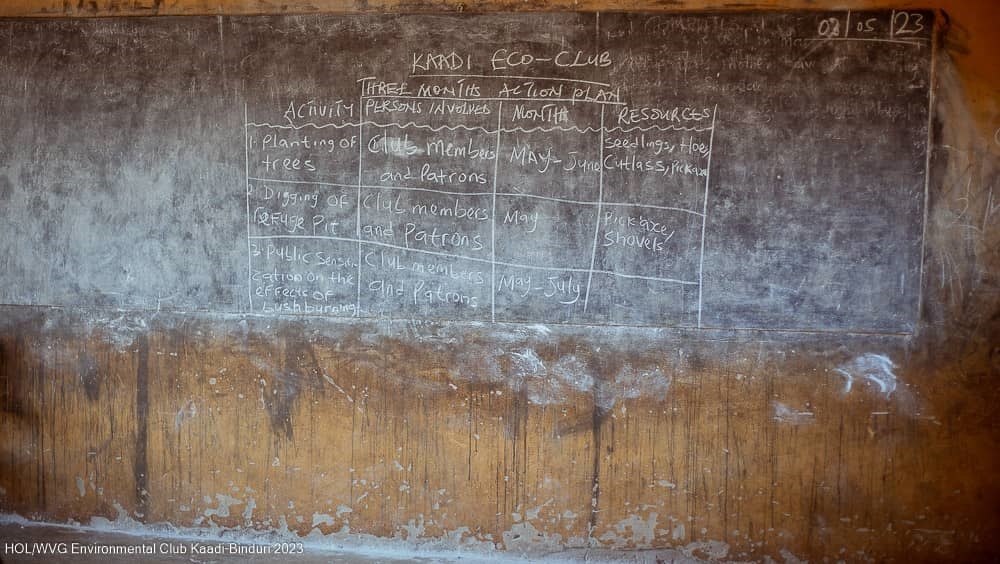 03/05/23
KAADI ECO-CLUB
THREE MONTHS ACTION PLAN
ACTIVITY PERSONS INVOLVED MONTH RESOURCES
1. Planting of trees Club members and Patrons MAY-June Seedlings, Hoe, Cutlass, Pickaxe
2. Digging of Refuge Pit Club members and Patrons May Pickaxe, Shovels
3. Public Sensiti- cation on the effects of bushburning Club members and Patrons May-July
HOL/WVG Environmental Club Kaadi-Binduri 2023